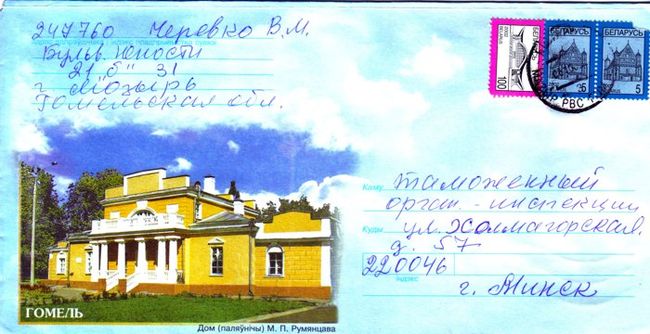 247760 Черевко В.М.
Бульв. Юности
21 "б" 31
г. Мозырь
Гомельская обл.
2002
БЕЛАРУСЬ
100
БЕЛАРУСЬ
БЕЛАРУСЬ
5
РВС
Каму
таможенный
орган - инспекции
Куды
ул. Холмогорская
д. 57
220046
Індэкс
г. Минск
ГОМЕЛЬ
Дом (паляўнічы) М. П. Румянцава